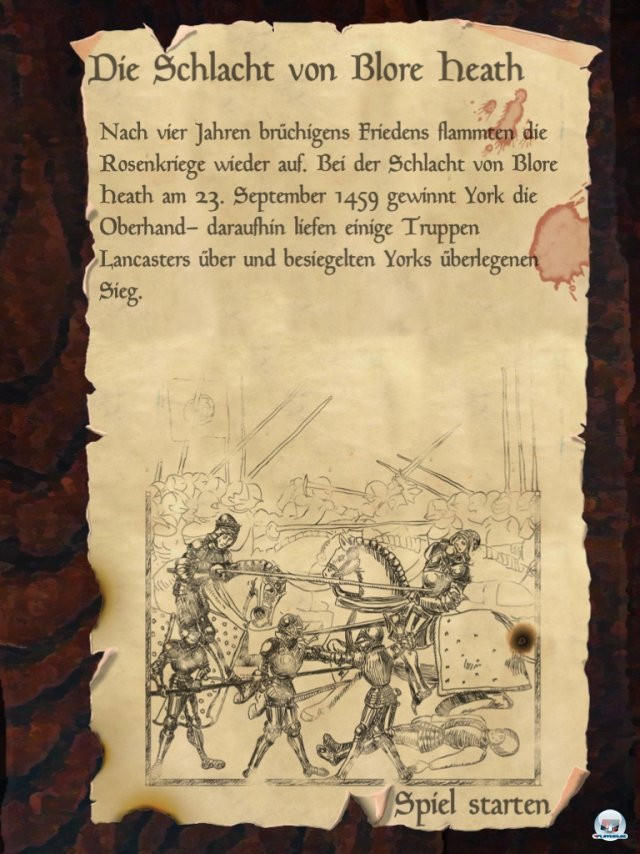 Die Schlacht von Blore Heath
Nach vier Jahren brüchigens Friedens flammten die
Rosenkriege wieder auf. Bei der Schlacht von Blore
Heath am 23. September 1459 gewinnt York die
Oberhand– daraufhin liefen einige Truppen
Lancasters über und besiegelten Yorks überlegenen
Sieg.
Spiel starten